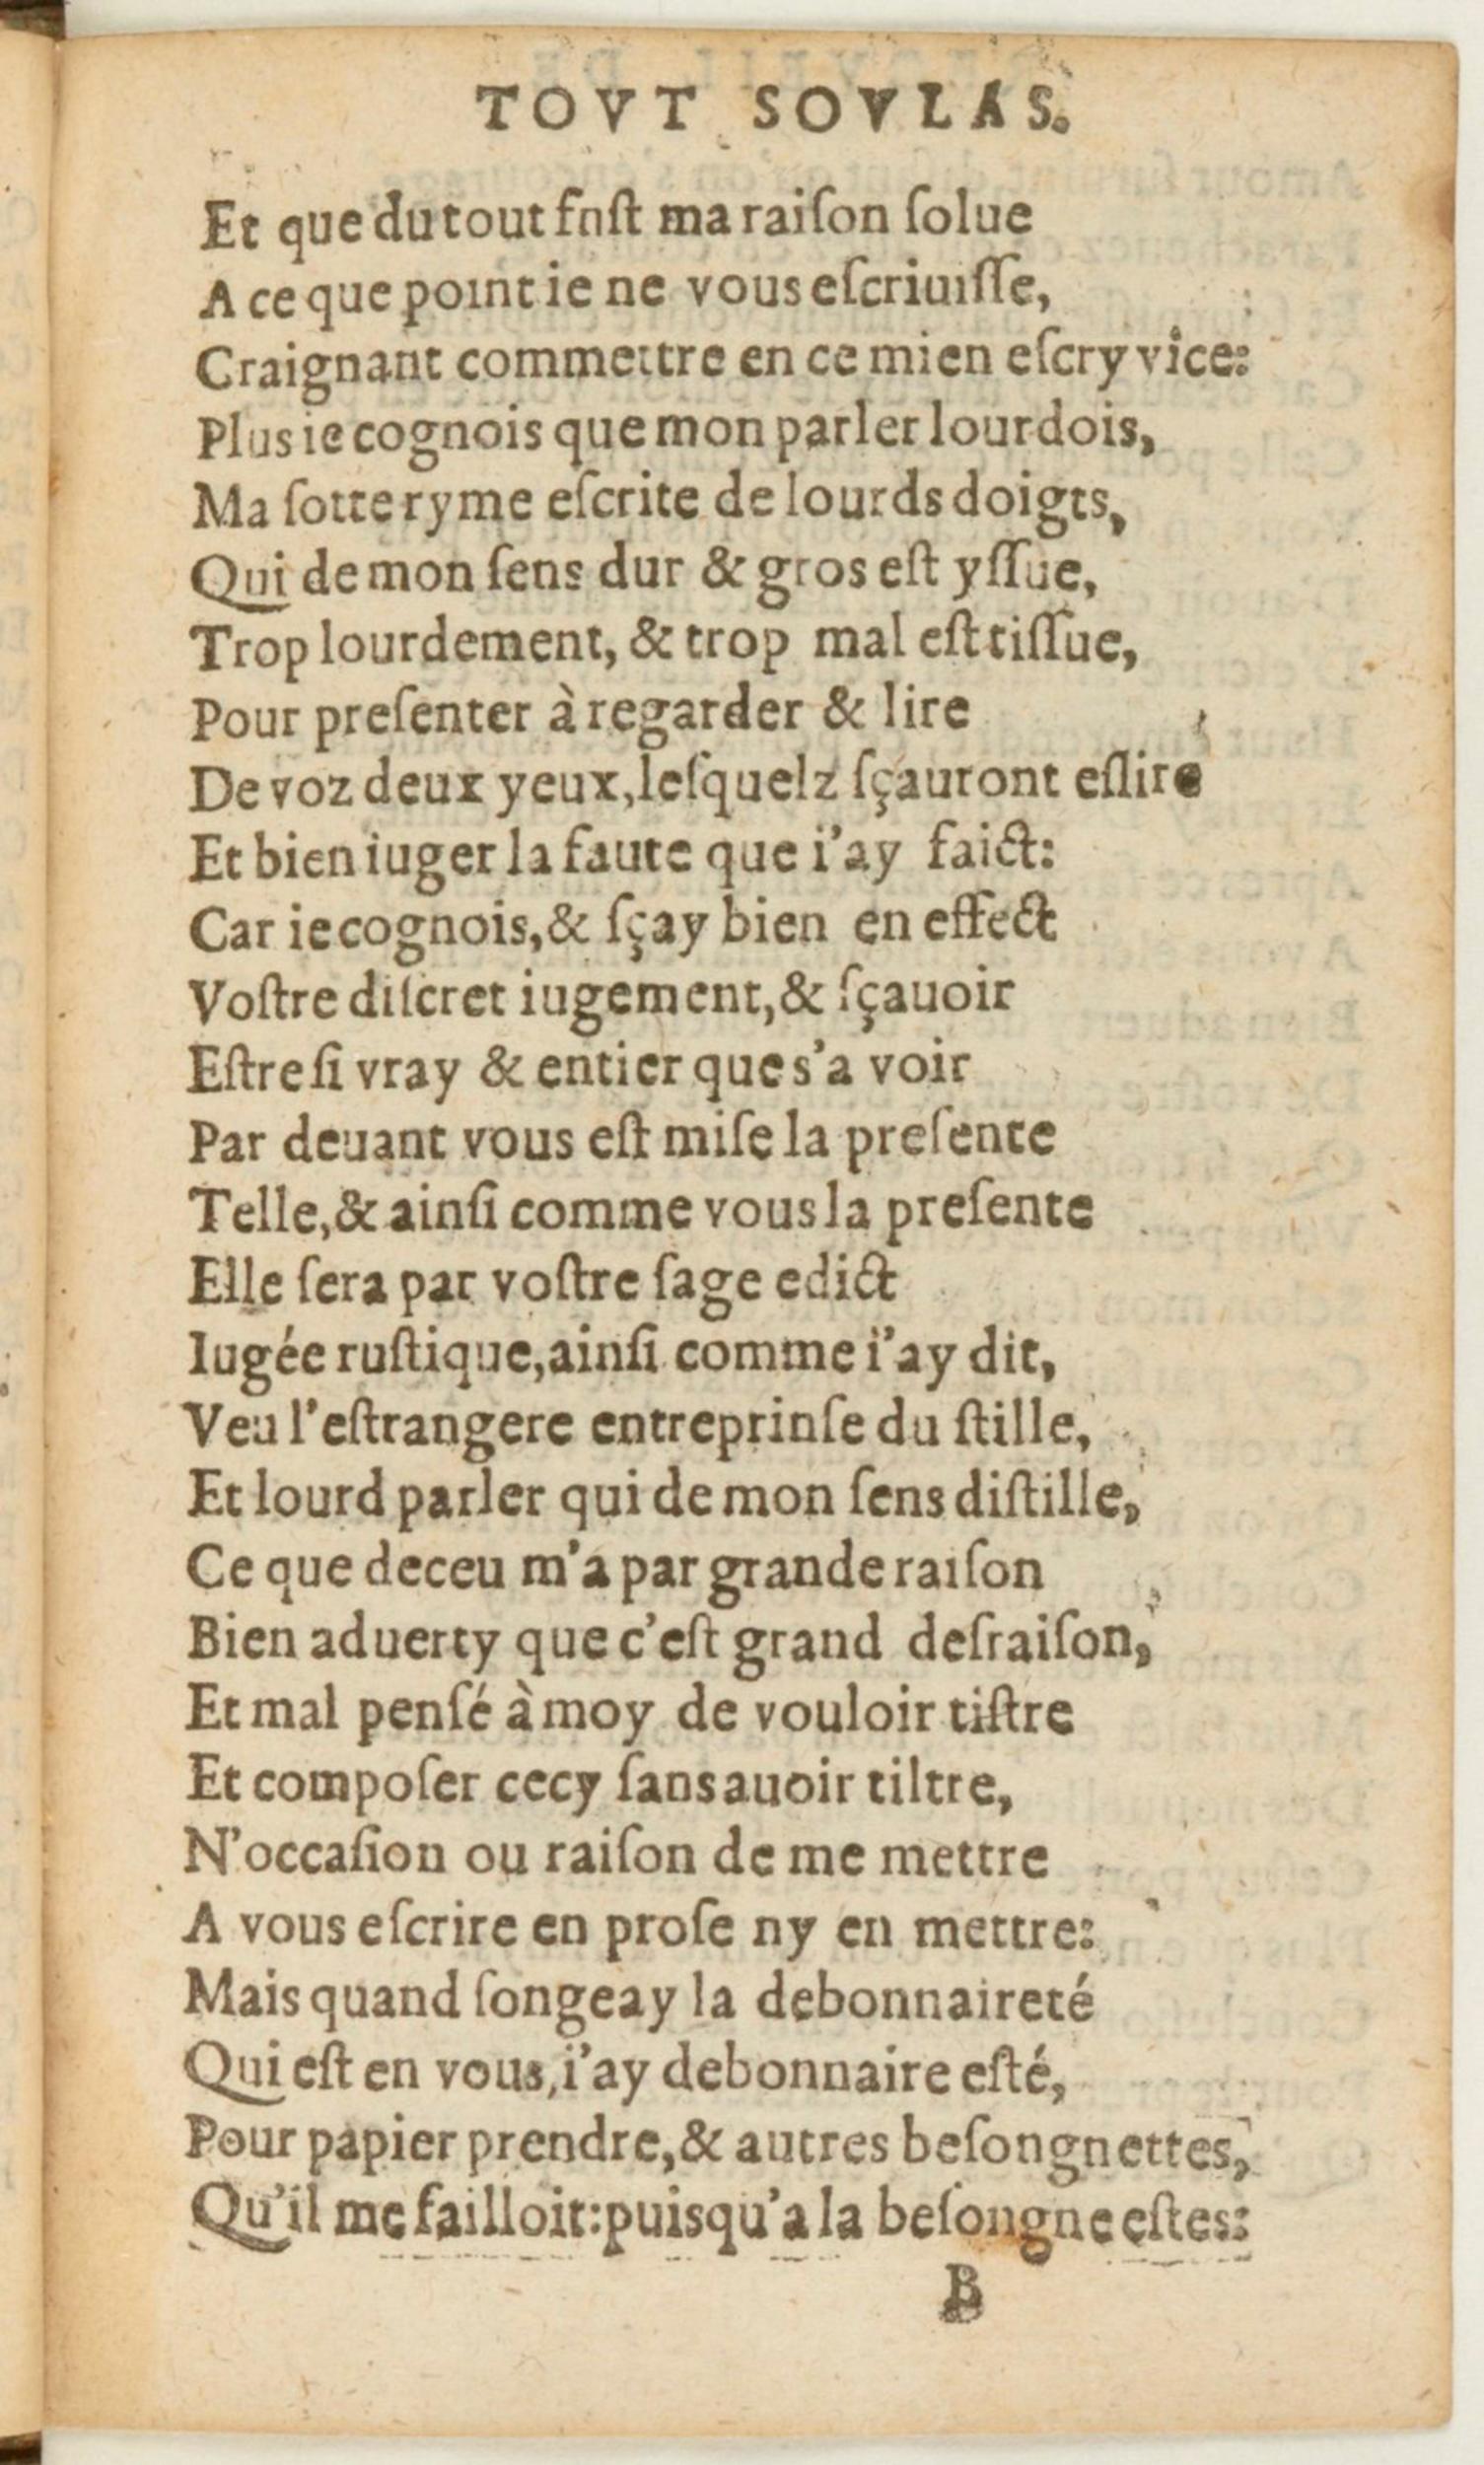 TOVT SOVLAS.
Et que du tout fust ma raiſon ſolue
A ce que point ie ne vous eſcriuiſſe,
Craignant commettre en ce mien eſcry vice:
Plus ie cognois que mon parler lourdois,
Ma ſotte ryme eſcrite de lourds doigts,
Qui de mon ſens dur & gros eſt yſſue,
Trop lourdement, & trop mal eſt tiſſue,
Pour preſenter à regarder & lire
De voz deux yeux, leſquelz ſçauront eſlire
Et bien iuger la faute que i'ay faict:
Car ie cognois, & ſçay bien en effect
Voſtre diſcret iugement, & ſçauoir
Eſtre ſi vray & entier que s'a voir
Par deuant vous eſt miſe la preſente
Telle, & ainſi comme vous la preſente
Elle ſera par voſtre ſage edict
Iugée ruſtique, ainſi comme i'ay dit,
Veu l'eſtrangere entreprinſe du ſtille,
Et lourd parler qui de mon ſens diſtille,
Ce que deceu m'a par grande raiſon
Bien aduerty que c'eſt grand deſraiſon,
Et mal penſé à moy de vouloir tiſtre
Et compoſer cecy ſans auoir tiltre,
N'occaſion ou raiſon de me mettre
A vous eſcrire en proſe ny en mettre:
Mais quand ſongeay la debonnaireté
Qui eſt en vous, i'ay debonnaire eſté,
Pour papier prendre, & autres beſongnettes,
Qu'il me failloit: puisqu'a la beſongne eſtes:
B